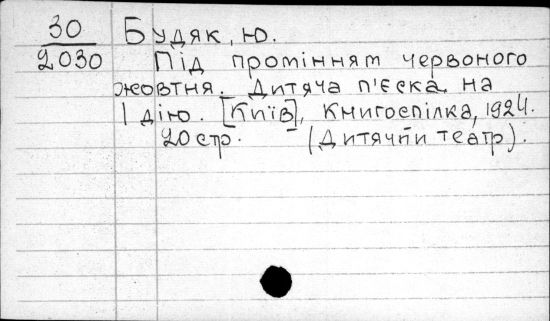 30 Будяк, Ю.
2030 Під промінням червоного
жовтня. Дитяча п'єска на
1 дію. [Київ], Книгоспілка, 1924.
20 стр. (Дитячий театр).